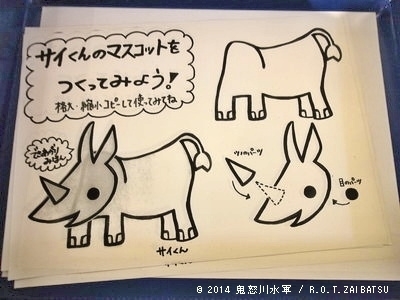 サイくんのマスコットを
つくってみよう!
拡大・縮小コピーして使ってみてね
できあがり
みほん
ツノのパーツ
目のパーツ
サイくん
© 2014 鬼怒川水軍 / R.O.T.ZAIBATSU